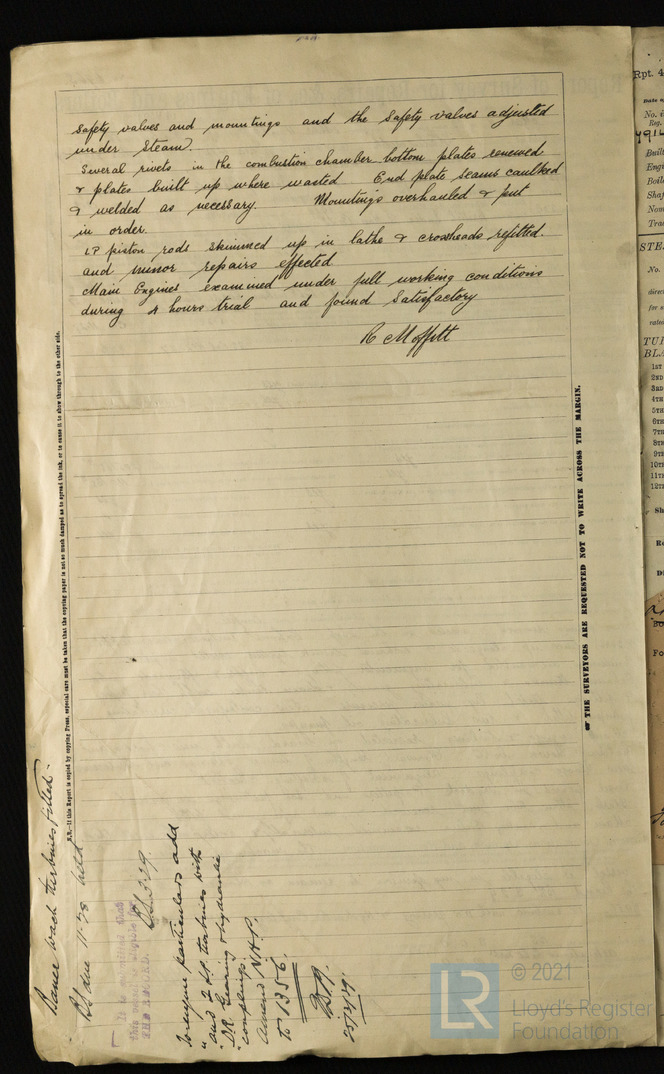 Safety valves and mountings and the safety valves adjusted
under Steam.
Several rivets in the combustion chamber bottom plates renewed
& plates built up where wasted End plate seams caulked
& welded as necessary. Mountings overhauled & put
in order.
LP piston rods skimmed up in lathe & crossheads refitted.
and minor repairs effected
Main Engines examined under full working conditions
during 4 hours trial and found Satisfactory
R Moffitt
N.B.—If this Report is copied by copying Press, especial care must be taken that the copying paper is not so much damped as to spread the ink, or to cause it to show through to the other side.
THE SURVEYORS ARE REQUESTED NOT TO WRITE ACROSS THE MARGIN.
Bauer Wach turbines fitted.
BS due 11-28 held
It is submitted that
this vessel is eligible for
THE RECORD.
BS 3.29.
To engine particulars add
"and 2 L.P. turbines with
"DR Gearing & hydraulic
"couplings.
Amend N.H.P.
to 1356.
25/3/29
© 2021
LR
Lloyd's Register
Foundation
Rpt. 4
Date of
No. i
Reg.
Buil
Engi
Boil
Shaf
Nom
Trad
STE
No.
direc
for s
rates
TUI
BLA
1ST
2ND
3RD
4TH
5TH
6TH
7TH
8TH
9TH
10TH
11TH
12TH
Sh
Ro
Di
Fo